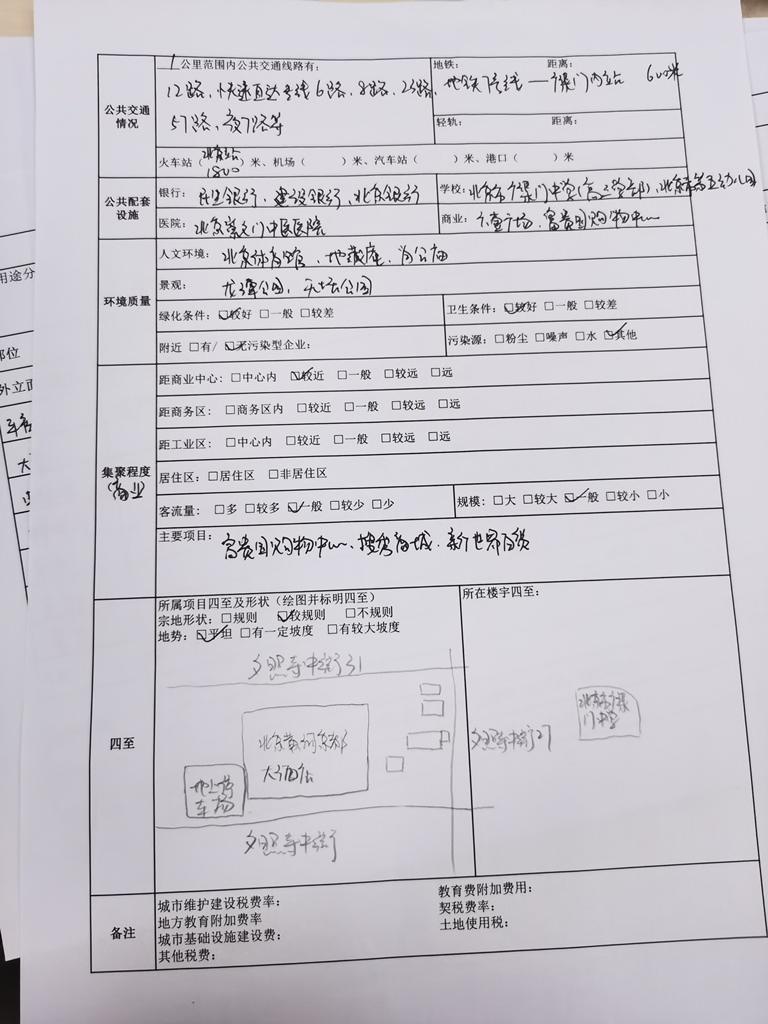 公共交通情况
1公里范围内公共交通线路有：
12路、快速直达专线6路、8路、23路、
57路、夜7路等
地铁： 距离：
地铁7号线—广渠门内站 600米
轻轨： 距离：
火车站（北京站1800）米、机场（ ）米、汽车站（ ）米、港口（ ）米
公共配套设施
银行：民生银行、建设银行、北京银行
学校：北京市广渠门中学(高三学部)、北京市第五幼儿园
医院：北京崇文门中医医院
商业：广场、富贵园购物中心
环境质量
人文环境：北京体育馆、地藏庵、公庙
景观：龙潭公园、天坛公园
绿化条件：☑较好 □一般 □较差
卫生条件：☑较好 □一般 □较差
附近 □有/ ☑无污染型企业：
污染源：□粉尘 □噪声 □水 ☑其他
集聚程度
(商业)
距商业中心：□中心内 ☑较近 □一般 □较远 □远
距商务区：□商务区内 □较近 □一般 □较远 □远
距工业区：□中心内 □较近 □一般 □较远 □远
居住区：□居住区 □非居住区
客流量：□多 □较多 ☑一般 □较少 □少
规模：□大 □较大 ☑一般 □较小 □小
主要项目：富贵国购物中心、搜秀商城、新世界百货
四至
所属项目四至及形状（绘图并标明四至）
宗地形状：□规则 ☑较规则 □不规则
地势：☑平坦 □有一定坡度 □有较大坡度
所在楼宇四至：
夕照寺中街
北京市广渠门中学
夕照寺中街
北京黄河京都
大酒店
地上停车场
夕照寺中街
备注
城市维护建设税费率：
教育费附加费用：
地方教育附加费率
契税费率：
城市基础设施建设费：
土地使用税：
其他税费：
用途分
部位
外立面